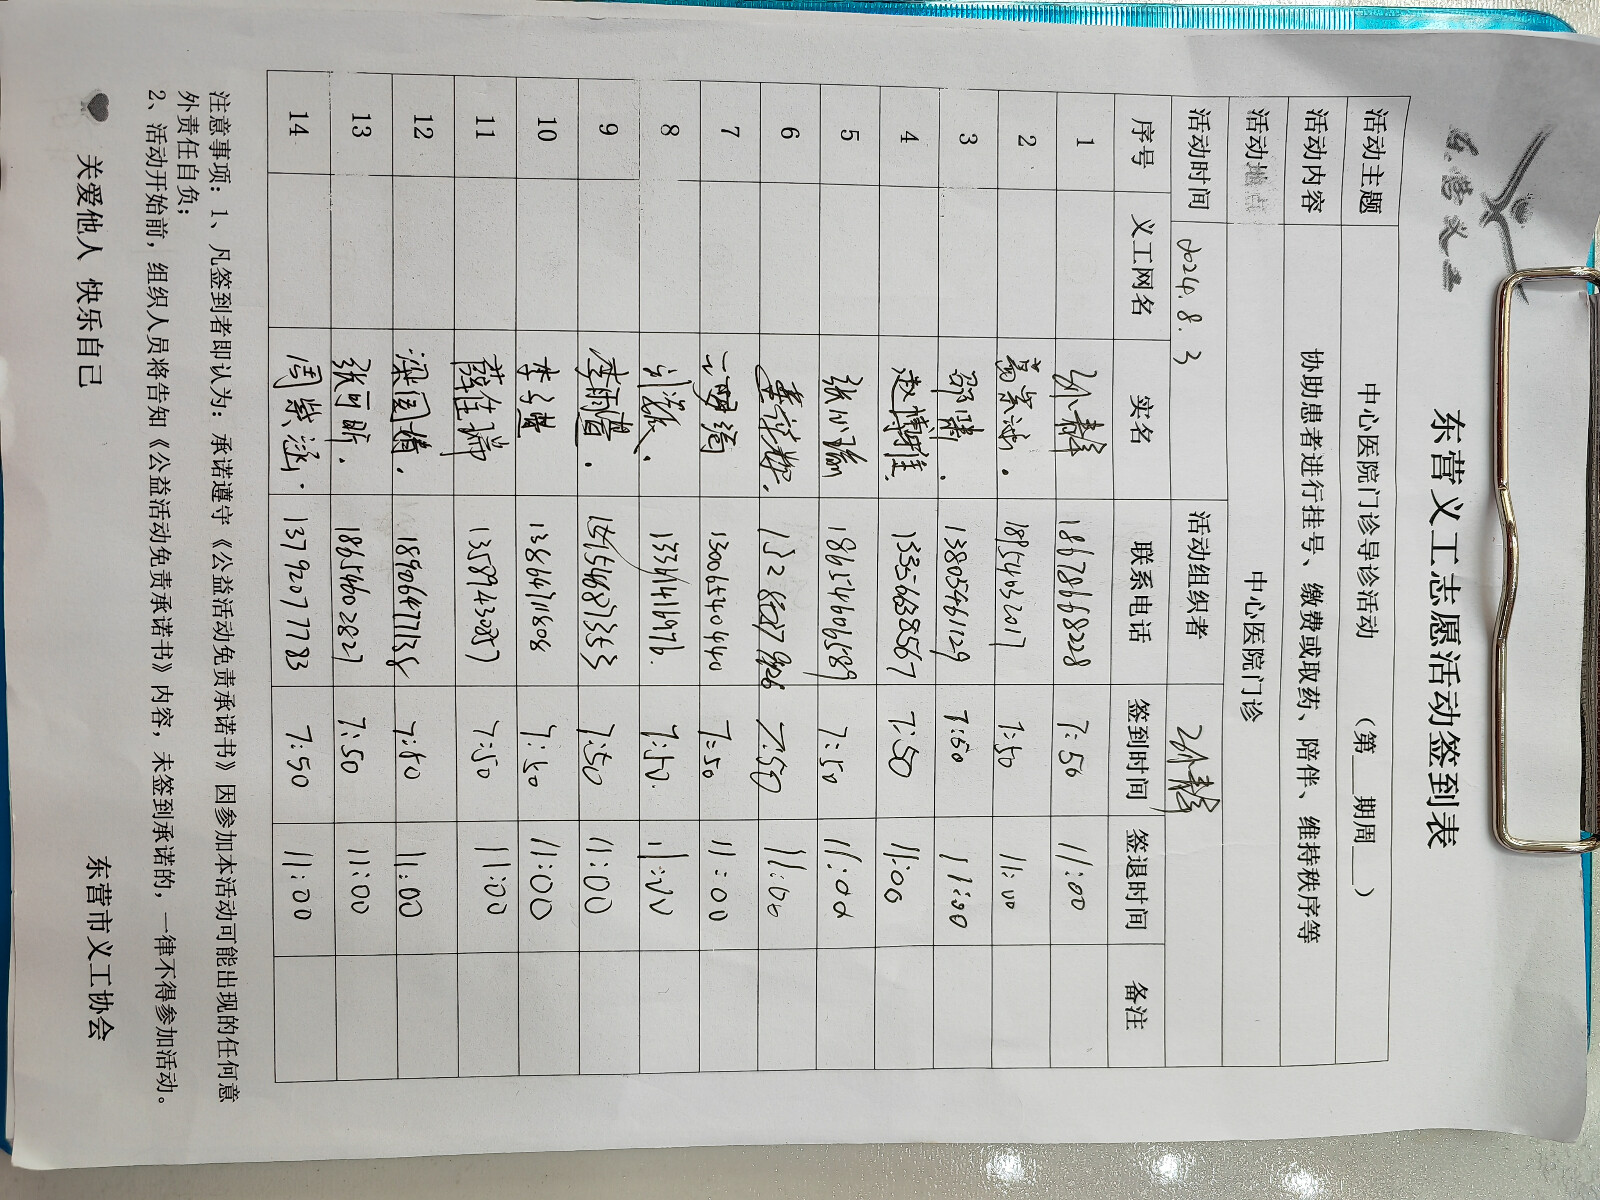 东营义工
东营义工志愿活动签到表
活动主题 中心医院门诊导诊活动 （第__期周__）
活动内容 协助患者进行挂号、缴费或取药、陪伴、维持秩序等
活动地点 中心医院门诊
活动时间 2024.8.3 活动组织者
序号 义工网名 实名 联系电话 签到时间 签退时间 备注
1 18678668228 7:50 11:00
2 18954032017 7:50 11:00
3 13805461129 7:50 11:00
4 赵博雅 13356638567 7:50 11:00
5 张心瑜 18654606589 7:50 11:00
6 7:50 11:00
7 13006540440 7:50 11:00
8 7:50 11:00
9 李雨萱. 7:50 11:00
10 13864711808 7:50 11:00
11 薛佳瑞 13589943087 7:50 11:00
12 梁国植. 7:50 11:00
13 张可昕. 18654602827 7:50 11:00
14 周紫涵. 13792077783 7:50 11:00
注意事项：1、凡签到者即认为：承诺遵守《公益活动免责承诺书》因参加本活动可能出现的任何意
外责任自负；
2、活动开始前，组织人员将告知《公益活动免责承诺书》内容，未签到承诺的，一律不得参加活动。
关爱他人 快乐自己 东营市义工协会